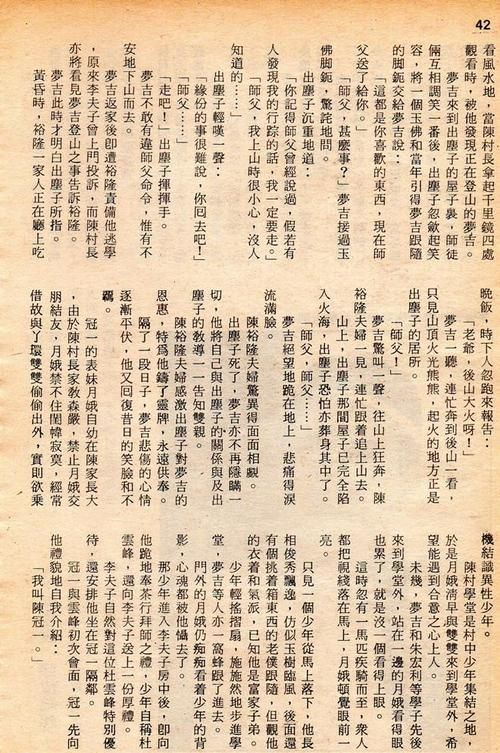 42
看風水地,當陳村長拿起千里鏡四處
觀看時,被他發現正在登山的夢吉。
夢吉來到出塵子的屋子裏,師徒
倆互相調笑一番後,出塵子忽歛起笑
容,將一個玉佛和當年引得夢吉跟隨
的脚鈪交給夢吉說:
「這都是你喜歡的東西,現在師
父送了給你。」
「師父,甚麼事?」夢吉接過玉
佛脚鈪,驚詫地問。
出塵子沉重地道:
「你記得師父曾經說過,假若有
人發現我的行踪的話,我一定要走。」
「師父,我上山時很小心,沒人
知道的……」
出塵子輕嘆一聲:
「緣份的事很難說,你囘去吧!」
「師父……」
「走吧!」出塵子揮揮手。
夢吉不敢有違師父命令,惟有不
安地下山而去。
夢吉返家後卽遭裕隆責備他逃學
,原來李夫子曾上門投訴,而陳村長
亦將看見夢吉登山之事告訴裕隆。
夢吉此時才明白出塵子所指。
黃昏時,裕隆一家人正在廳上吃
晚飯,時下人忽跑來報告:
「老爺,後山大火呀!」
夢吉一聽,連忙奔到後山一看,
只見山頂火光熊熊,起火的地方正是
出塵子的居所。
「師父!」
夢吉驚叫一聲,往山上狂奔,陳
裕隆夫婦一見,連忙跟着追上山去。
山上,出塵子那間屋子已完全陷
入火海,出塵子恐怕亦葬身其中了。
「師父,師父……」
夢吉絕望地跪在地上,悲痛得淚
流滿臉。
陳裕隆夫婦驚異得面面相覷。
出塵子死了,夢吉亦不再隱瞞一
切,他將自己與出塵子的關係與及出
塵子的教導一一告知雙親。
陳裕隆夫婦感激出塵子對夢吉的
恩惠,特爲他鑄了靈牌,永遠供奉。
隔了一段日子,夢吉悲傷的心情
逐漸平伏,他又囘復昔日的笑臉和不
羈。
冠一的表妹月娥自幼在陳家長大
,由於陳村長家教森嚴,禁止月娥交
朋結友,月娥禁不住閨幃寂寞,經常
借故與丫環雙雙偷偷出外,實則欲乘
機結識異性少年。
陳村學堂是村中少年集結之地,
於是月娥淸早與雙雙來到學堂外,希
望能遇到合意之心上人。
未幾,夢吉和朱宏利等學子先後
來到學堂外,站在一邊的月娥看得眼
也累了,就是沒一個看得上眼。
這時忽有一馬匹疾騎而至,衆人
都把視綫落在馬上,月娥頓覺眼前一
亮。
只見一個少年從馬上落下,他長
相俊秀飄逸,仿似玉樹臨風,後面還
有個挑着箱東西的老僕跟隨,但觀他
的衣着和氣派,已知他是富家子弟。
少年輕搖摺扇,施施然地步進學
堂,夢吉等人亦一窩蜂跟了進去。
門外的月娥仍痴痴看着少年的背
影,心魂都被他懾去了。
那少年進入李夫子房中後,卽向
他跪地奉茶行拜師之禮,少年自稱杜
雲峰,還向李夫子送上一份厚禮。
李夫子自然對這位杜雲峰特別優
待,還安排他坐在冠一隔鄰。
冠一與雲峰初次會面,冠一先向
他禮貌地自我介紹:
「我叫陳冠一。」